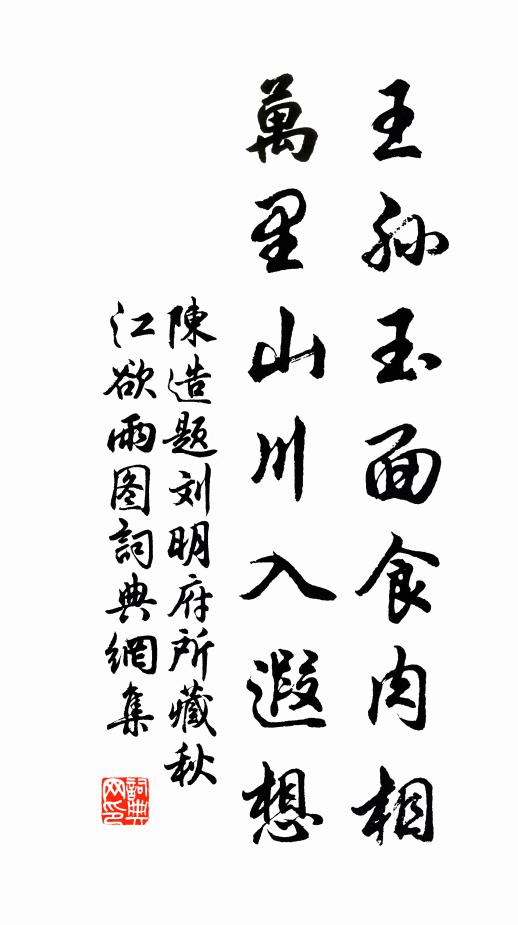 王孙玉面食肉相
萬里山川入遐想
陳造题刘明府所藏秋
江欲雨图詞典網集
詞典
网印